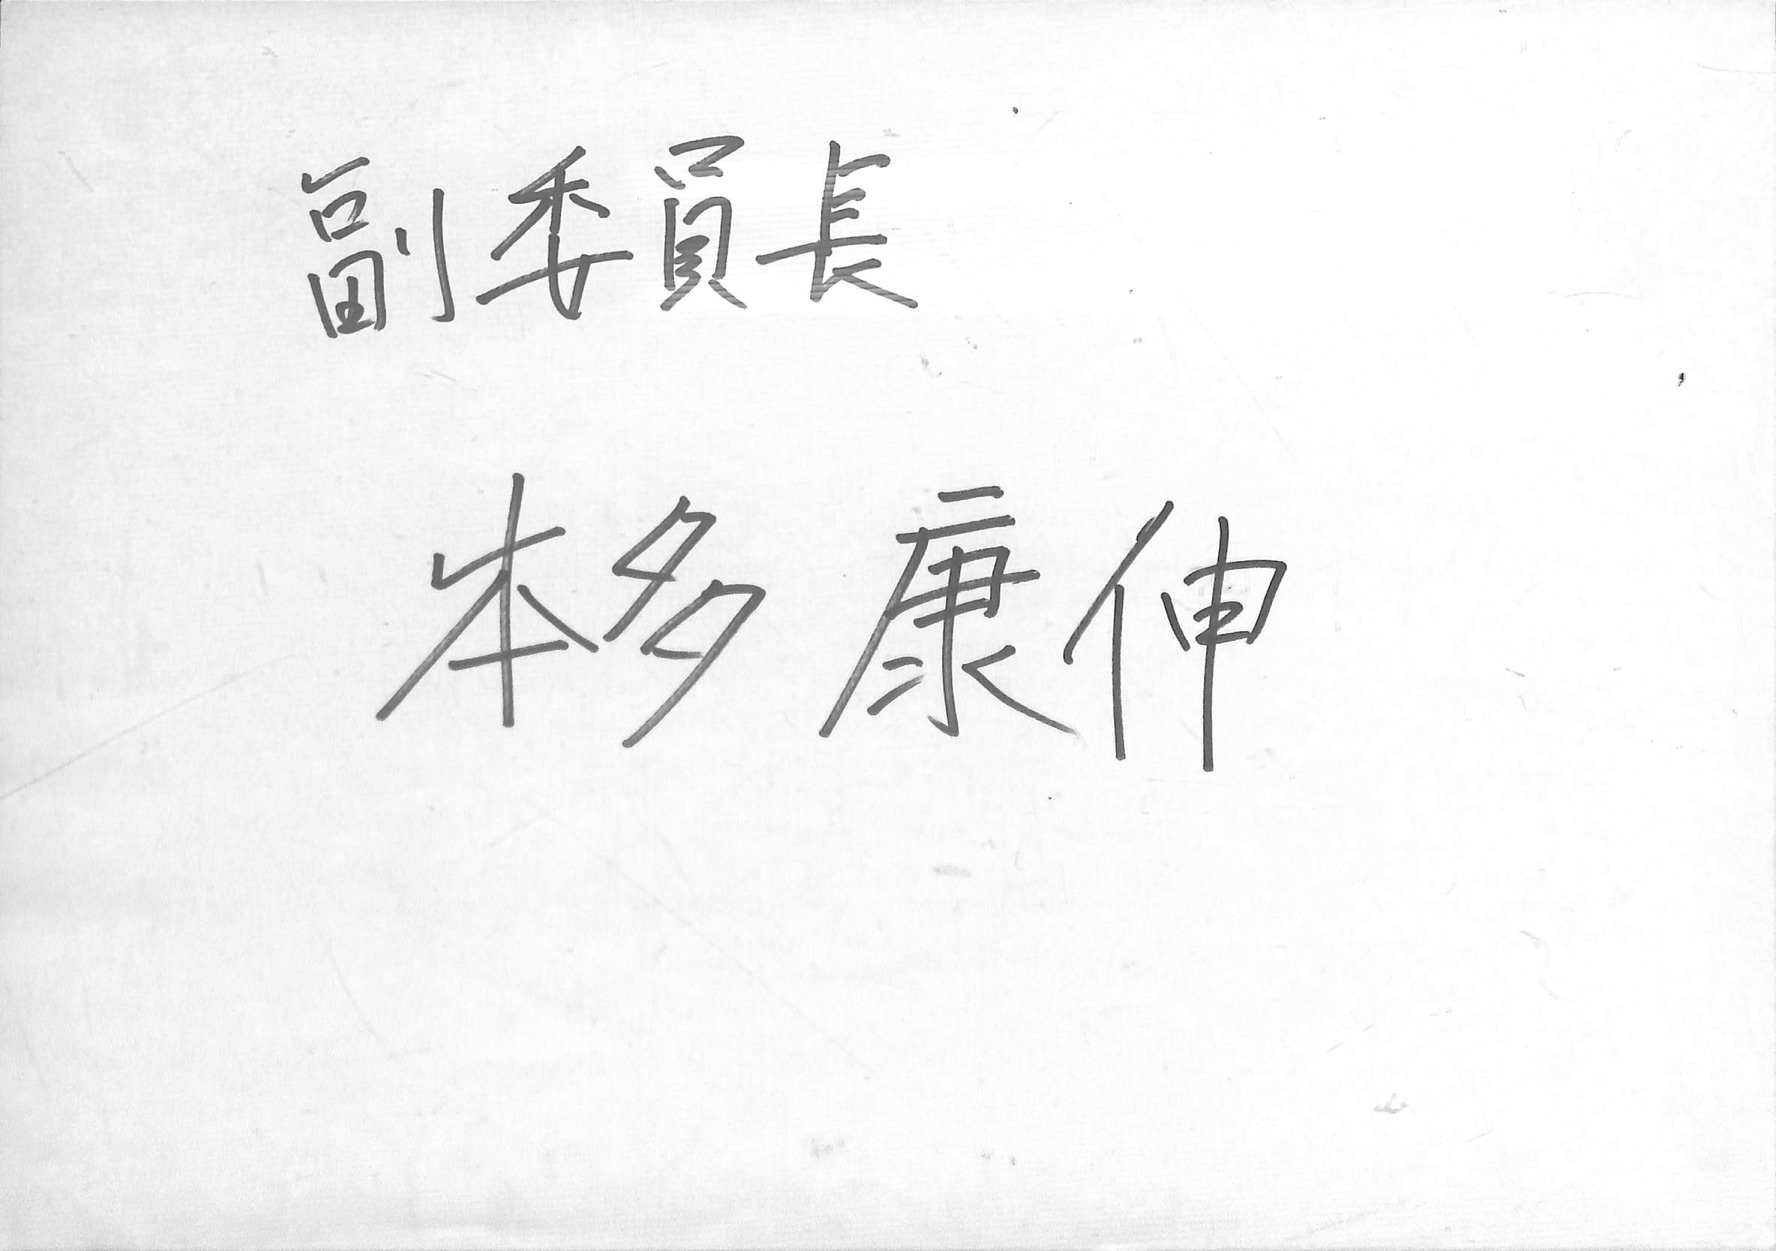 副委員長
本多康伸